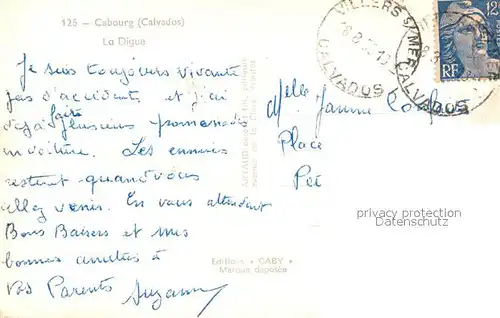 125 — Cabourg (Calvados)
La Digue
VILLERS S/MER
CALVADOS
VILLERS S/MER
CALVADOS
12
RF
Je suis toujours vivante
pas d'accident et j'ai
déjà faite plusieurs promenade
en voiture. Les ennuies
restent quand vous
allez venir. En vous attendant
Bons Baisers et mes
bonnes amitiés à
vos Parents Suzanne
Melle Jeanne
Place
privacy protection
Datenschutz
Editions « GABY »
Marque déposée